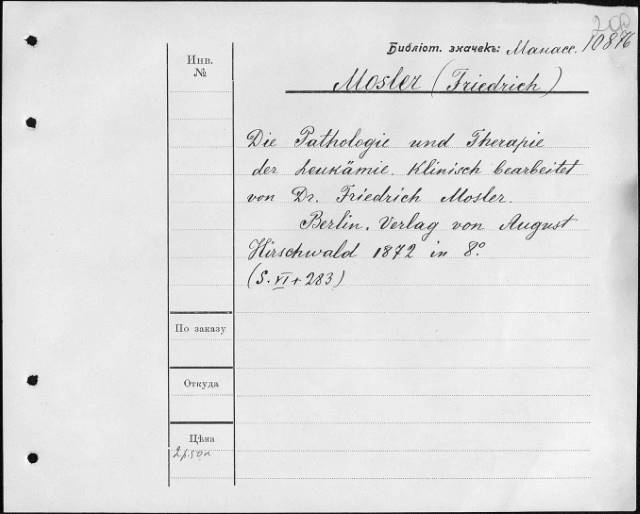 200
Библіот. значекъ: Манасс. 10876
Инв.
№
Mosler (Friedrich)
Die Pathologie und Therapie
der Leukämie. Klinisch bearbeitet
von Dr. Friedrich Mosler.
Berlin. Verlag von August
Hirschwald 1872 in 8º.
(S. VI + 283)
По заказу
Откуда
Цѣна
2 р. 50 к